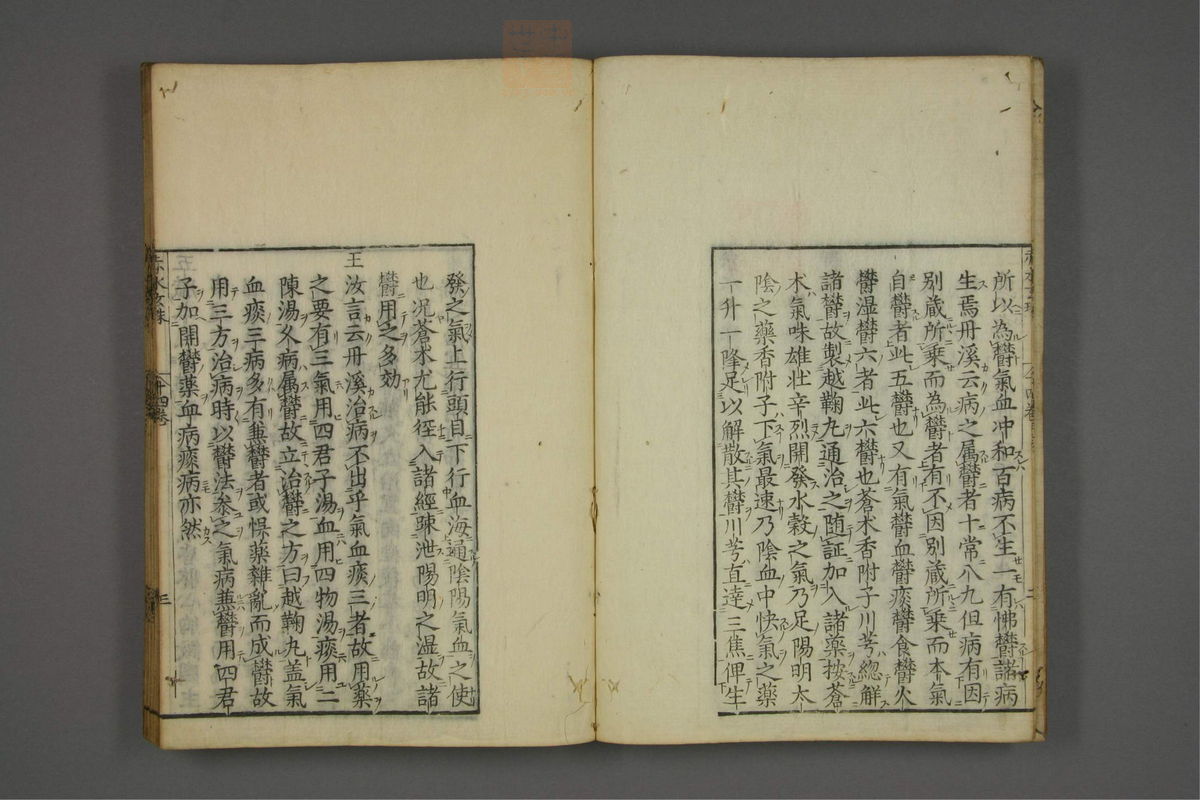 所以為欝氣血冲和百病不生一有怫欝諸病
生焉丹溪云病之属欝者十常八九但病有因
別蔵所乘而為欝者有不因別蔵所乘而本氣
自欝者此五欝也又有氣欝血欝痰欝食欝火
欝湿欝六者此六欝也蒼朮香附子川芎緫解
諸欝故製越鞠丸通治之随証加入諸藥按蒼
朮氣味雄壮辛烈開發水穀之氣乃足陽明太
陰之藥香附子下氣最速乃陰血中快氣之藥
一升一降足以解散其欝川芎直達三焦俾生
發之氣上行頭目下行血海通陰陽氣血之使
也况蒼朮尤能徑入諸經疎泄陽明之湿故諸
欝用之多効
王汝言云丹溪治病不出乎氣血痰三者故用藥
之要有三氣用四君子湯血用四物湯痰用二
陳湯久病属欝故立治欝之方曰越鞠丸盖氣
血痰三病多有兼欝者或悮藥雜亂而成欝故
用三方治病時以欝法参之氣病兼欝用四君
子加開欝藥血病痰病亦然
赤水玄珠
十四卷
三